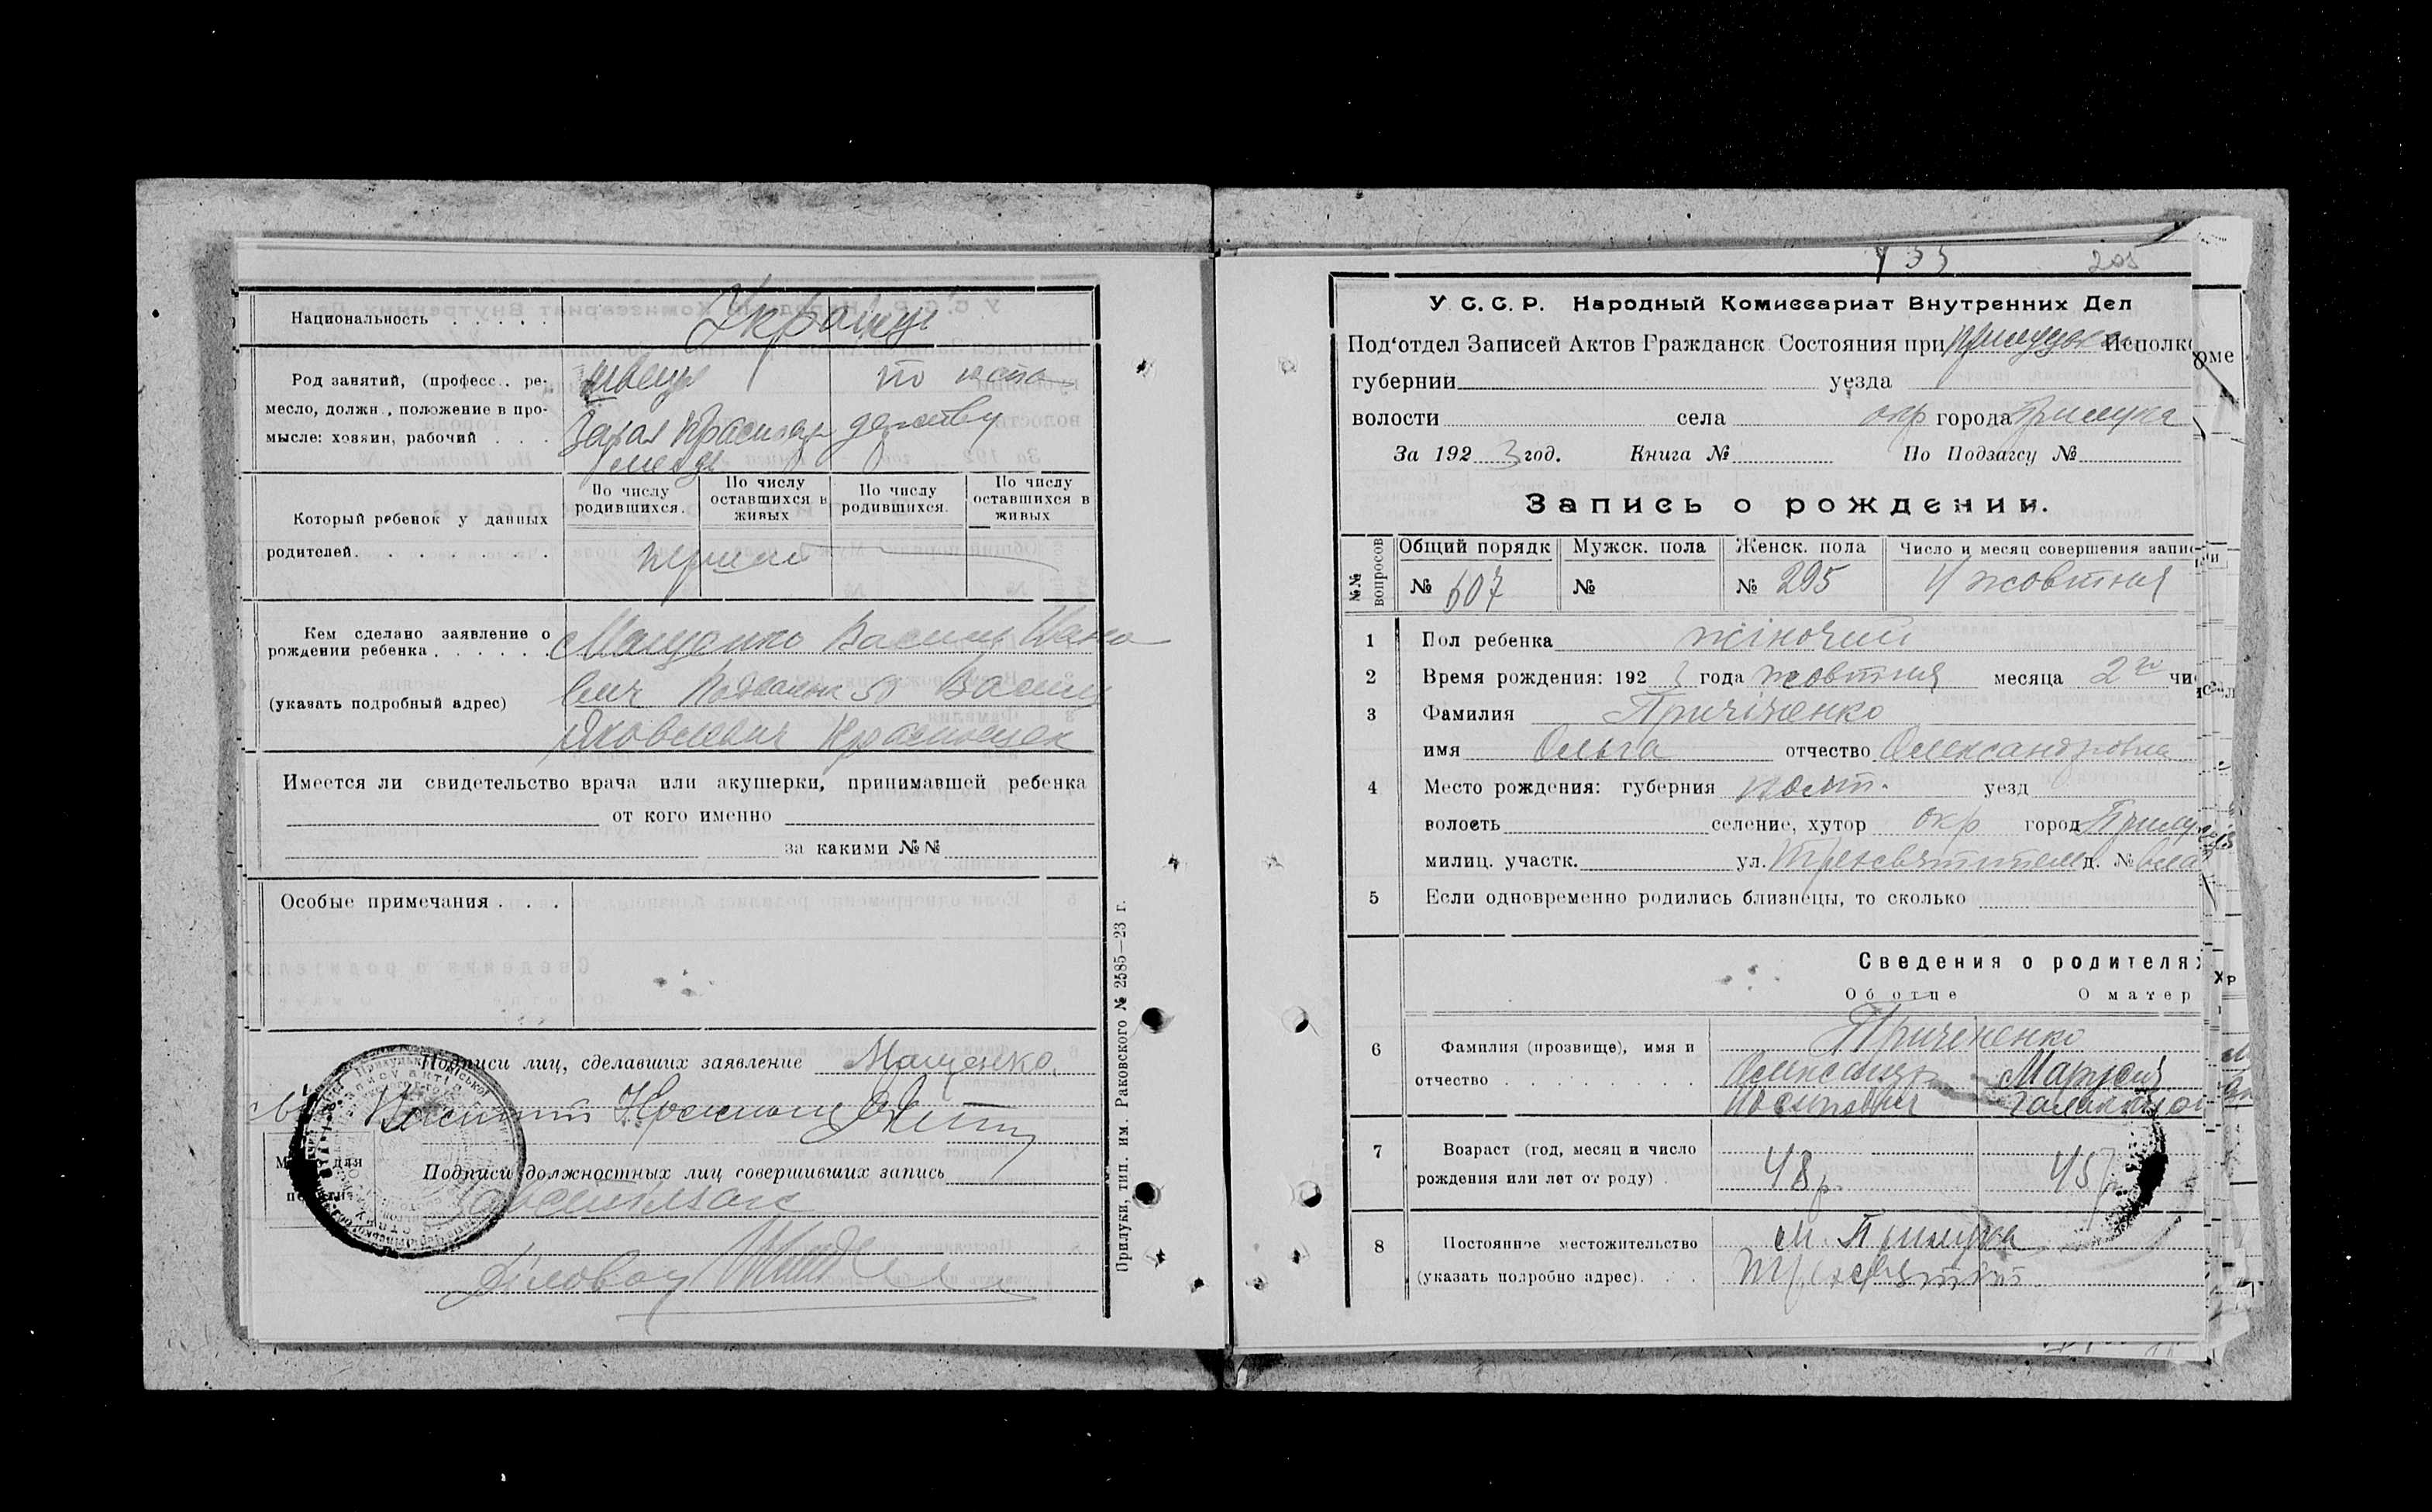 Национальность . . . . .
Українці
Род занятий, (професс.. ре-
месло, должн., положение в про-
мысле: хозяин, рабочий . . .
швець
по
Который ребенок у данных
родителей. . . . . . . .
По числу родившихся.
По числу оставшихся в живых
По числу родившихся.
По числу оставшихся в живых
Кем сделано заявление о
рождении ребенка . . . . . .
(указать подробный адрес)
Мащенко Василь Івано
вич 50 Василь
Яковлевич
Имеется ли свидетельство врача или акушерки, принимавшей ребенка
от кого именно
за какими №№
Особые примечания . . .
Подписи лиц, сделавших заявление Мащенко.
Место для печати
Подписи должностных лиц совершивших запись
Діловод
Прилуки, тип. им. Раковского № 2585—23 г.
205
У С. С. Р. Народный Комиссариат Внутренних Дел
Под‘отдел Записей Актов Гражданск. Состояния при Исполко
губернии уезда
волости села окр города Прилука
За 192 3 год. Книга № По Подзагсу №
Запись о рождении.
№№ вопросов
Общий порядк
Мужск. пола
Женск. пола
Число и месяц совершения запис
№ 607
№
№ 295
4 жовтня
1 Пол ребенка жіночий
2 Время рождения: 192 3 года жовтня месяца 2 чис
3 Фамилия Причіненко
имя Ольга отчество Олександровна
4 Место рождения: губерния полт. уезд
волость селение, хутор окр город Прилу
милиц. участк. ул. Трехсвятител д. №
5 Если одновременно родились близнецы, то сколько
Сведения о родителях
Об отце О матер
6 Фамилия (прозвище), имя и
отчество . . . . . . . . .
Причіненко
Олександр Марусия
Иосипович Галактіон
7 Возраст (год, месяц и число
рождения или лет от роду) .
48 р. 45 р
8 Постоянное местожительство
(указать подробно адрес). . .
м. Прилука
Трехсвятит.